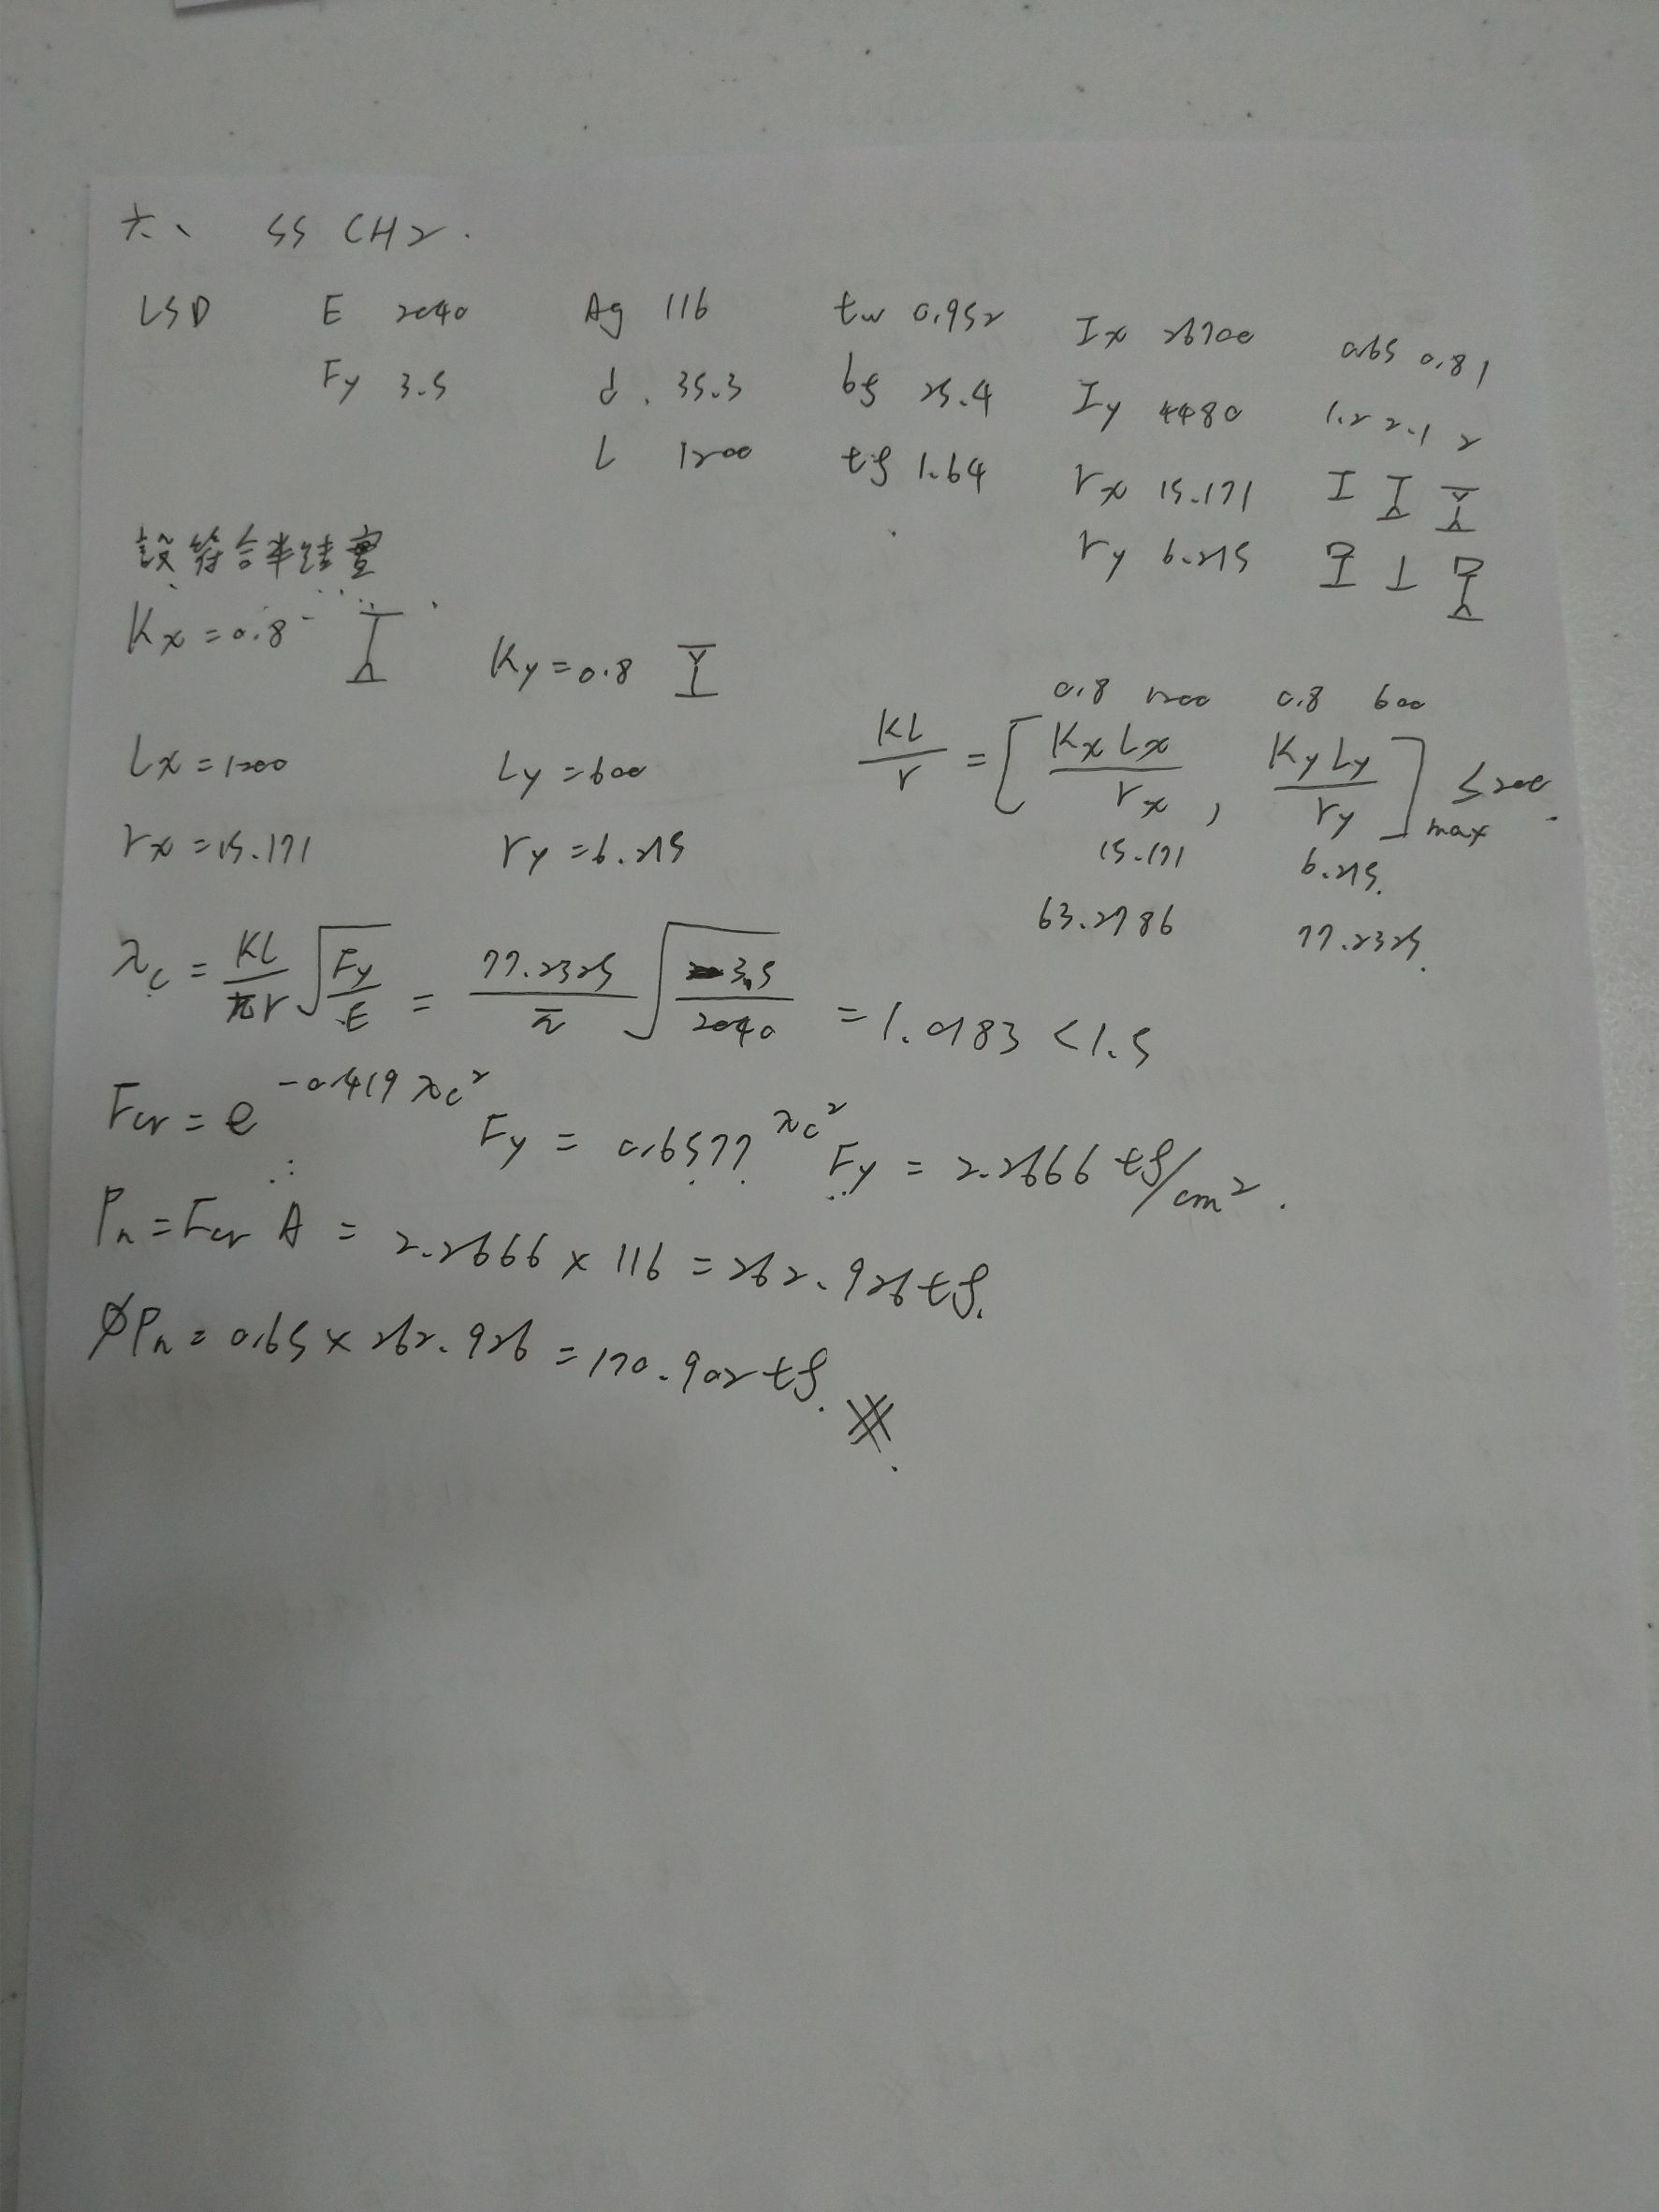 六、 SS CH2.
LSD E 2040 Ag 116 tw 0.952 Ix 26700 0.65 0.8 1
Fy 3.5 d. 35.3 bf 25.4 Iy 4480 1.2 2.1 2
L 1200 tf 1.64 rx 15.171
ry 6.215
設符合半結實
Kx = 0.8 Ky = 0.8
0.8 1200 0.8 600
Lx = 1200 Ly = 600 KL/r = [KxLx/rx, KyLy/ry]max ≤ 200.
rx = 15.171 ry = 6.215 15.171 6.215.
63.2786 77.2325.
λc = KL/πr √Fy/E = 77.2325/π √3.5/2040 = 1.0183 < 1.5
Fcr = e^-0.419λc² Fy = 0.6577^λc² Fy = 2.2666 tf/cm².
Pn = Fcr A = 2.2666 × 116 = 262.926 tf.
φPn = 0.65 × 262.926 = 170.902 tf.